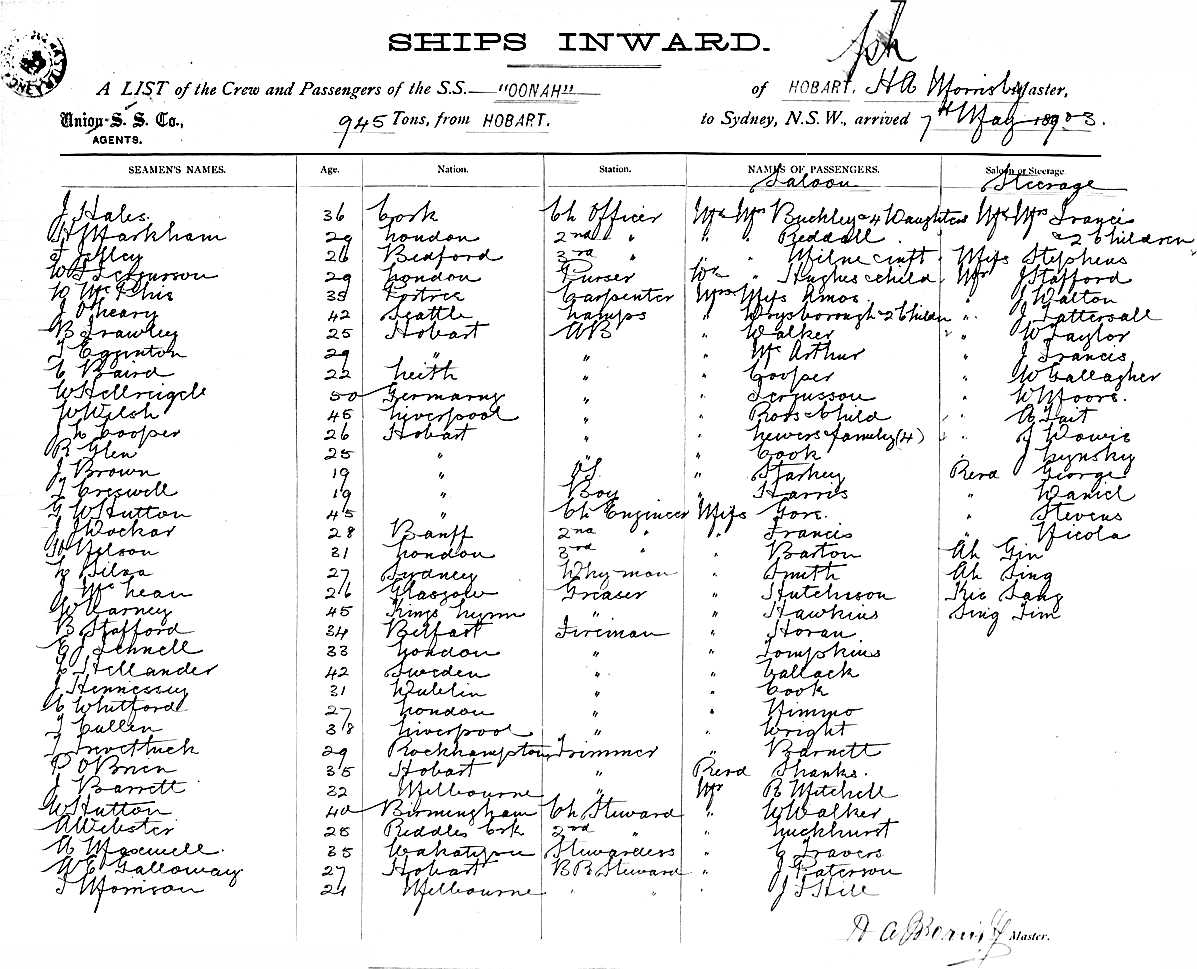 SHIPS INWARD.
A LIST of the Crew and Passengers of the S.S. "OONAH" of HOBART, H A Master,
Union S. S. Co., 945 Tons, from HOBART. to Sydney, N.S.W., arrived 7th May 1903.
AGENTS.
SEAMEN'S NAMES. Age. Nation. Station. NAMES OF PASSENGERS. Saloon or Steerage
Saloon Steerage
J Hales 36 Cork Ch Officer Mr & Mrs Buckley & 4 Daughters Mr & Mrs Francis
Markham 29 London 2nd " " " Reddall & 2 Children
26 Bedford 3rd " " " Milne & inft Miss Stephens
W Fergusson 29 London Purser Dr " Hughes & child Mr J Stafford
W McPhie 35 Portree Carpenter Mrs & Miss Amos " J Walton
J O'Heary 42 Seattle Lamps " & 2 Children " J Tattersall
B Frawley 25 Hobart AB " Walker " W Taylor
T Egginton 29 " " " McArthur " J Francis
C Baird 22 Leith " " Cooper " W Gallagher
50 Germany " " Fergusson " W Moore
W Welsh 45 Liverpool " " Ross & Child " A Tait
J L Cooper 26 Hobart " " Lewers & family (4) " J Dowie
R Glen 25 " " " Cook " J Lynsky
J Brown 19 " OS " Starkey Revd George
T Creswell 19 " Boy " Harris " Daniel
G W Hutton 45 " Ch Engineer Miss Gore " Stevens
J Dockar 28 Banff 2nd " " Francis " Nicola
Nelson 31 London 3rd " " Barton Ah Gin
Silva 27 Sydney Whyman " Smith Ah Sing
J McLean 26 Glasgow Greaser " Hutchison Kie Sang
W Carney 45 Kings Lynn " " Hawkins Sing Tim
B Stafford 34 Belfast Fireman " Horan
E J Fennell 33 London " " Tompkins
C Hellander 42 Sweden " " Callack
J Hennessy 31 Dublin " " Cook
C Whitford 27 London " " Nimmo
J Cullen 38 Liverpool " " Wright
29 Rockhampton Trimmer " Barnett
P O'Brien 35 Hobart " Revd Shanks.
J Barrett 32 Melbourne " Mr R Mitchell
W Hutton 40 Birmingham Ch Steward " W Walker
A Webster 28 2nd " " Luckhurst
A Maxwell 35 Wakatipu Stewardess " G Travers
W E Galloway 27 Hobart B R Steward " J Paterson
T Morrison 24 Melbourne " " " J S Hill
Master.